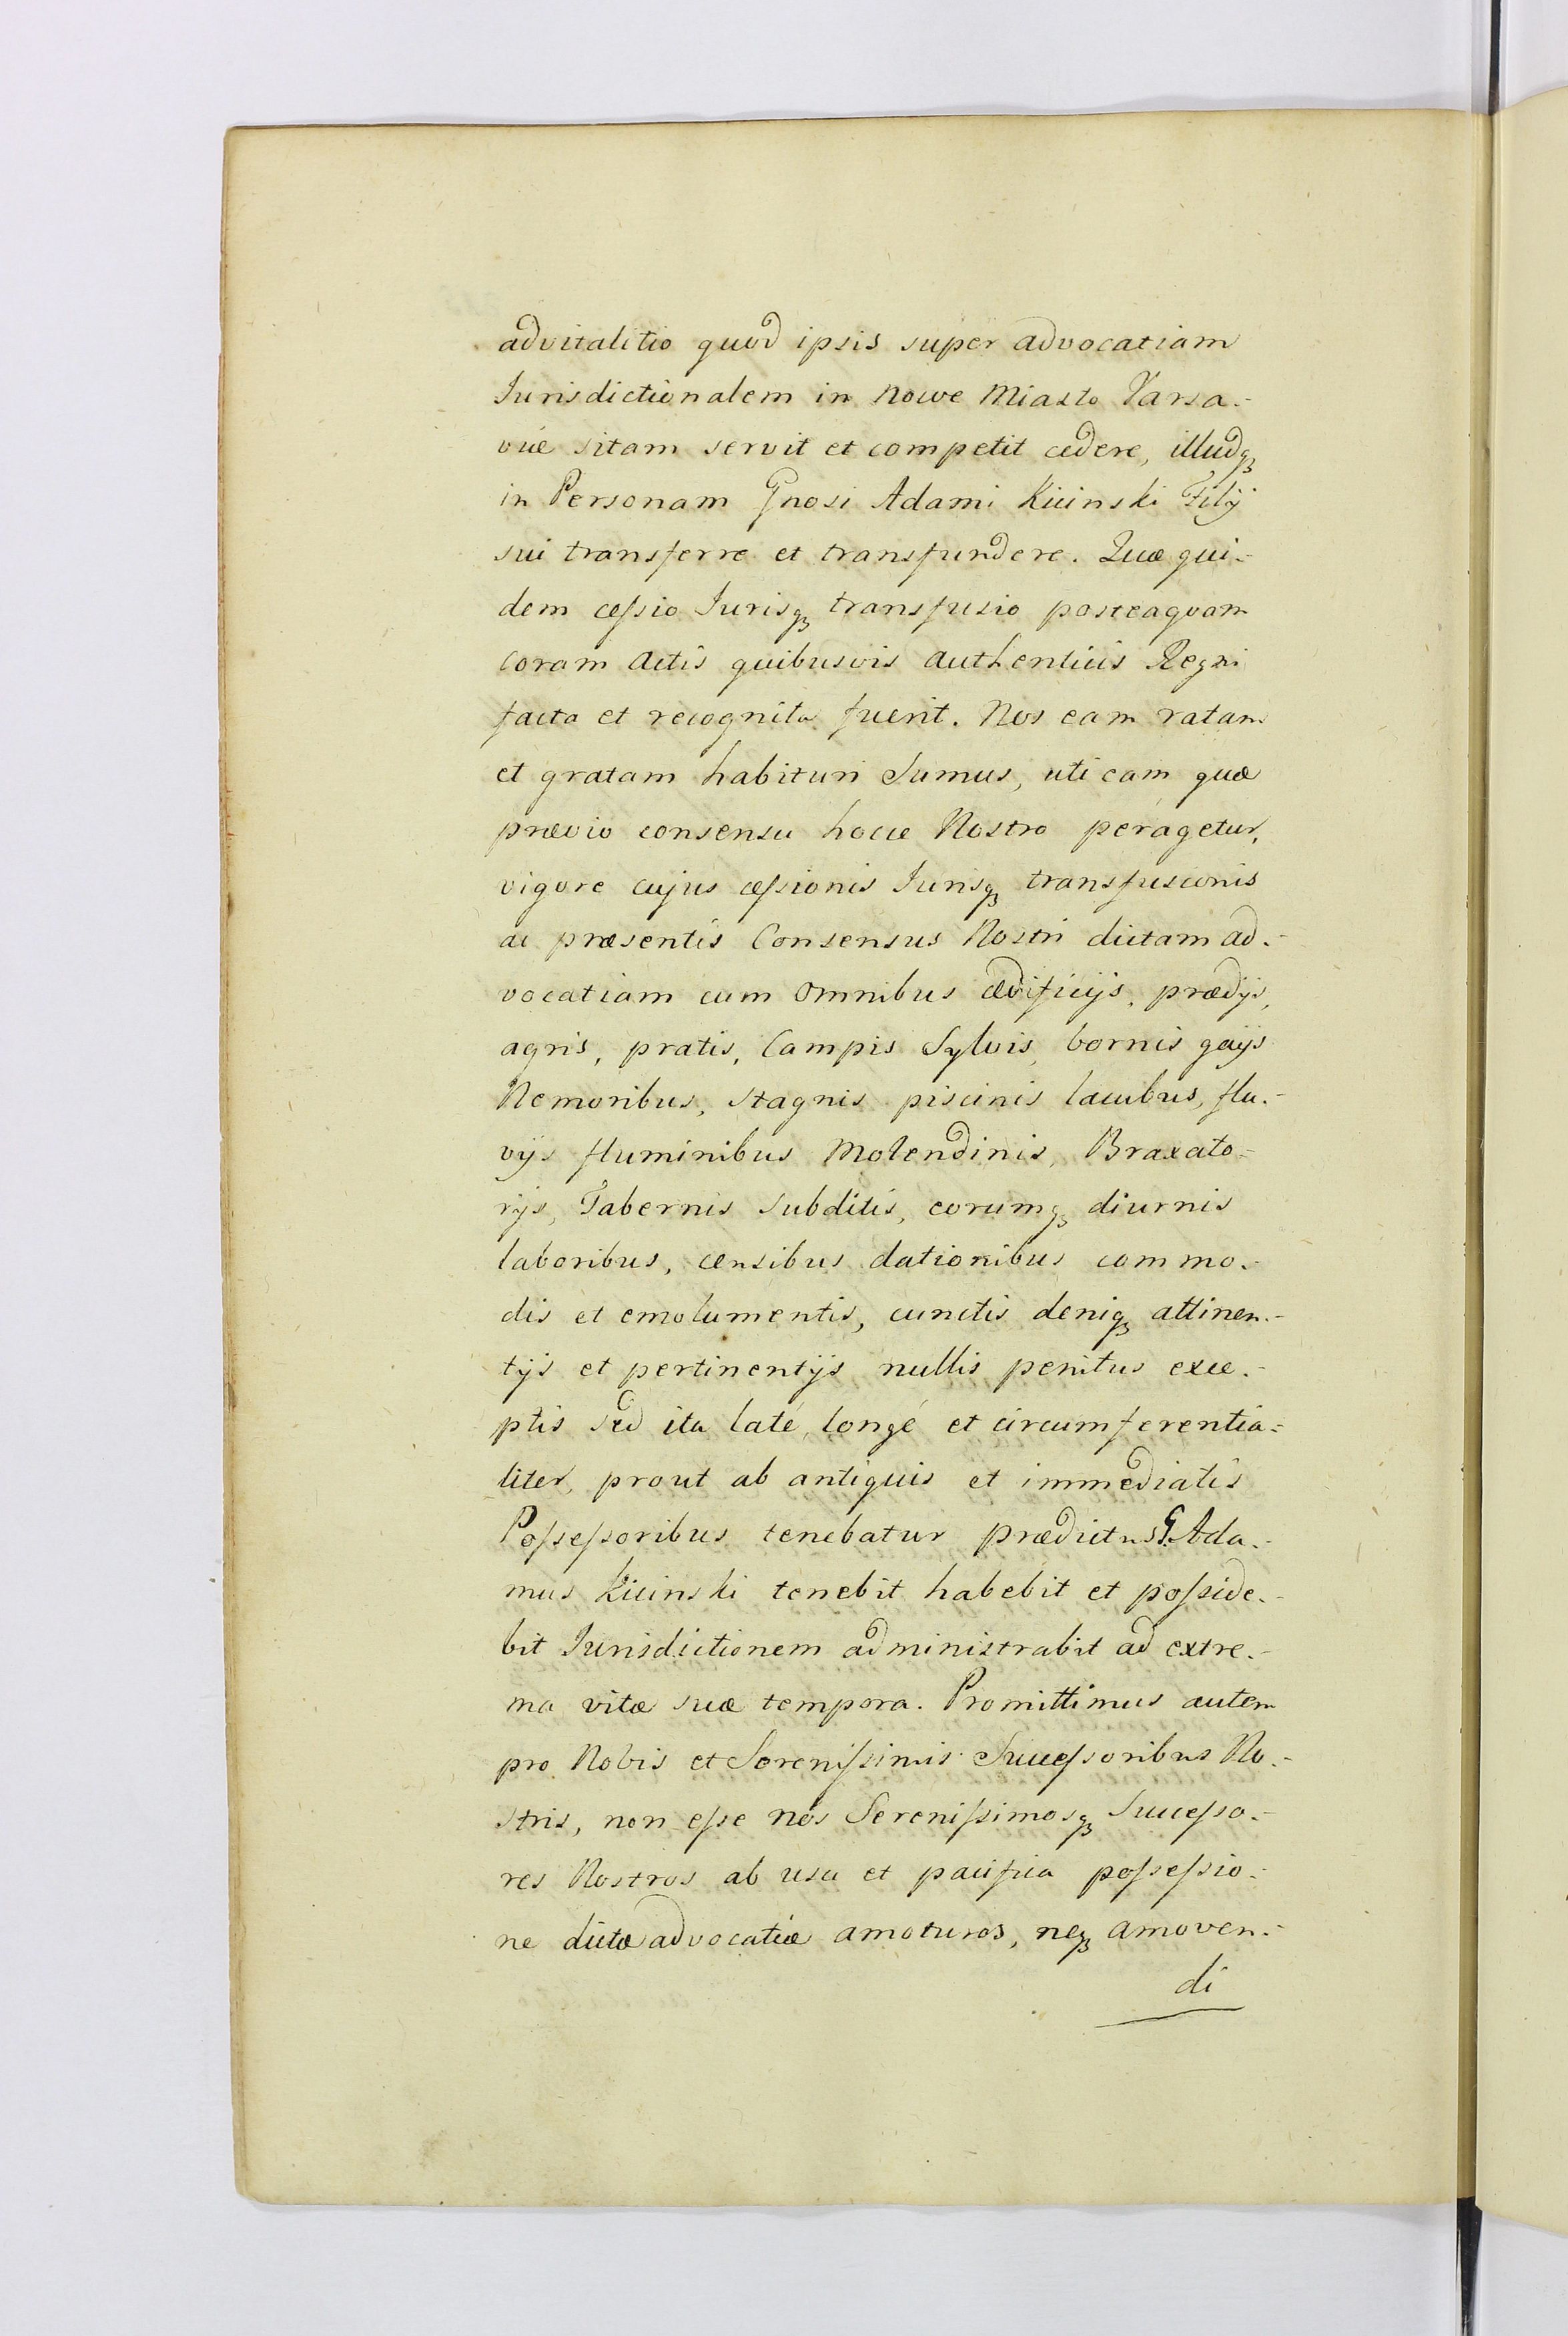 advitalitio quod ipsis super advocatiam
Jurisdictionalem in Nowe Miasto Varsa-
viæ sitam servit et competit cedere, illudq₃
in Personam Gnosi Adami Kicinski Filij
sui transferre et transfundere. Quæ qui-
dem ceſsio Jurisq₃ transfusio posteaquam
coram Actis quibusvis authenticis Regni
facta et recognita fuerit. Nos eam ratam
et gratam habituri Sumus, uti eam quæ
prævio consensu hocce Nostro peragetur,
vigore cujus ceſsionis Jurisq₃ transfusionis
ac præsentis Consensus Nostri dictam ad-
vocatiam cum omnibus ædificijs, prædijs,
agris, pratis, Campis Sylvis, bornis gaijs
Nemoribus, stagnis piscinis lacubus, flu-
vijs fluminibus Molendinis, Braxato-
rijs, Tabernis subditis, eorumq₃ diurnis
laboribus, censibus dationibus commo-
dis et emolumentis, cunctis deniq₃ attinen-
tijs et pertinentijs nullis penitus exce-
ptis sed ita laté, longé et circumferentia-
liter, prout ab antiquis et immediatis
Poſseſsoribus tenebatur prædictus G. Ada-
mus Kicinski tenebit habebit et poſside-
bit Jurisdictionem administrabit ad extre-
ma vitæ suæ tempora. Promittimus autem
pro Nobis et Sereniſsimis Succeſsoribus No-
stris, non eſse nos Sereniſsimosq₃ Succeſso-
res Nostros ab usu et pacifica poſseſsio-
ne dictæ advocatiæ amoturos, neq₃ amoven-
di